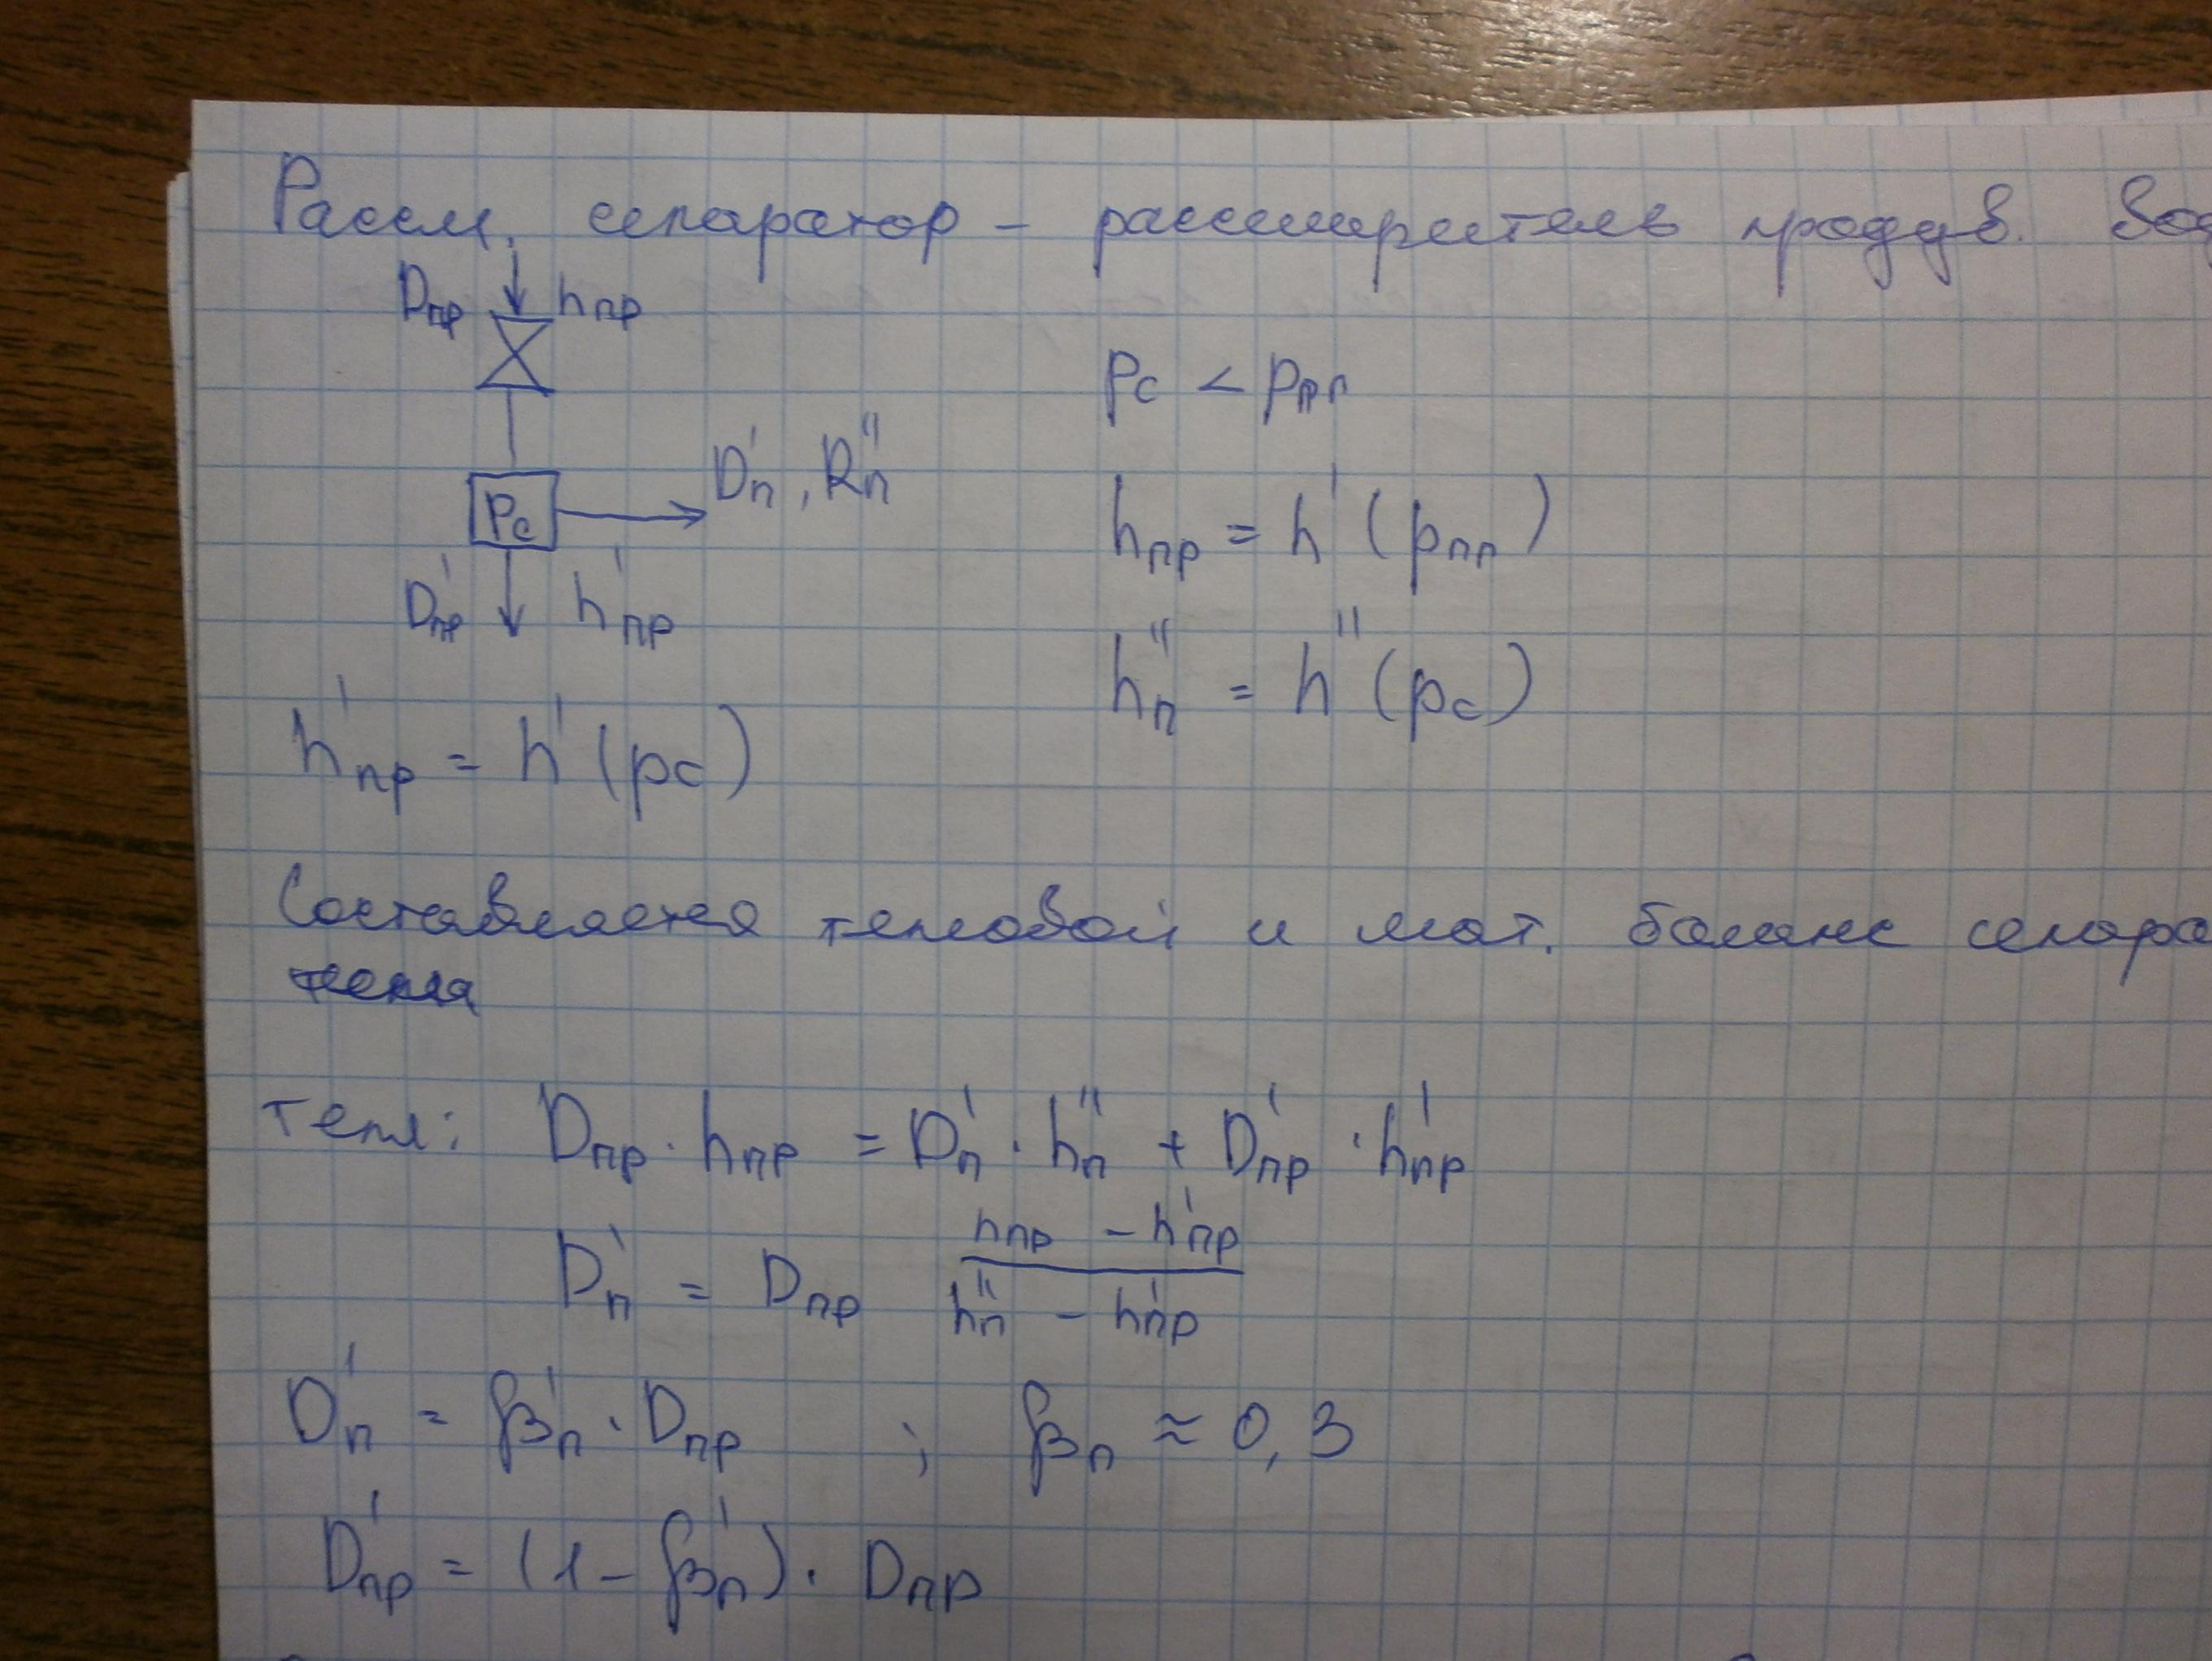 Рассм. сепаратор – расширитель продув.
Dпр hпр
pс < pпр
D'п, h''п
pс
hпр = h'(pпр)
D'пр h'пр
h''п = h''(pс)
h'пр = h'(pс)
Составляется тепловой и мат. баланс
тепл: Dпр · hпр = D'п · h''п + D'пр · h'пр
D'п = Dпр (hпр – h'пр) / (h''п – h'пр)
D'п = β'п · Dпр ; βп ≈ 0,3
D'пр = (1 – β'п) · Dпр